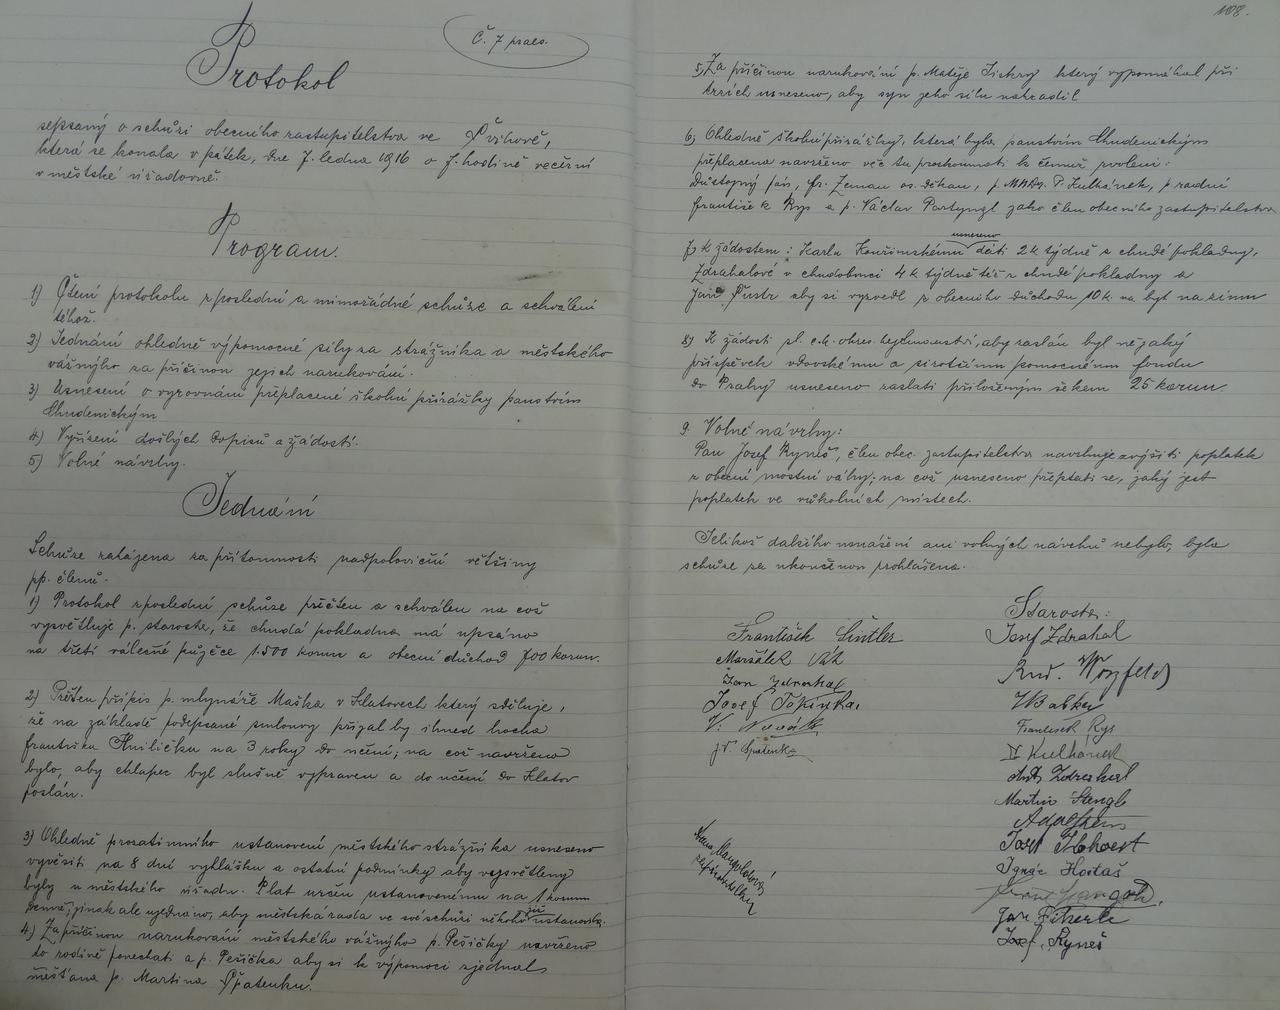 Č. 7 praes.
Protokol
sepsaný o schůzi obecního zastupitelstva ve Švihově,
která se konala v pátek, dne 7. ledna 1916 o 7. hodině večerní
v městské úřadovně.
Program.
1) Čtení protokolu z poslední a mimořádné schůze a schválení
téhož.
2) Jednání ohledně výpomocné síly za strážníka a městského
vážného za příčinou jejich narukování.
3) Usnesení o vyrovnání přeplacené školní přirážky panstvím
Chudenickým
4) Vyřízení došlých dopisů a žádostí.
5) Volné návrhy.
Jednání
Schůze zahájena za přítomnosti nadpoloviční většiny
pp. členů.
1) Protokol z poslední schůze přečten a schválen na což
vysvětluje p. starosta, že chudá pokladna má upsáno
na třetí válečné půjčce 1.500 korun a obecní důchod 700 korun.
2) Přečten přípis p. mlynáře Maška v Klatovech který sděluje,
že na základě podepsané smlouvy přijal by ihned hocha
Františka Hniličku na 3 roky do učení; na což navrženo
bylo, aby chlapec byl slušně vypraven a do učení do Klatov
poslán.
3) Ohledně prozatimního ustanovení městského strážníka usneseno
vyvěsiti na 8 dní vyhlášku a ostatní podmínky aby vysvětleny
byly u městského úřadu. Plat určen ustanovenému na 1 korunu
denně, jinak ale ujednáno, aby městská rada ve své schůzi někoho již ustanovila.
4) Za příčinou narukování městského vážného p. Pešičky navrženo
to rodině ponechati a p. Pešička aby si k výpomoci zjednal
měšťana p. Martina Špatenku.
108.
5) Za příčinou narukování p. Matěje Jiskry který vypomáhal při
trzích usneseno, aby syn jeho sílu nahradil
6) Ohledně školní přirážky, která byla panstvím Chudenickým
přeplacena navrženo věc tu prozkoumati k čemuž zvoleni:
Důstojný pán, fr. Zeman os. děkan, p. MUDr. P. Kulhánek, p. radní
František Rys a p. Václav Partyngl jako člen obecního zastupitelstva
7) K žádostem: Karlu Kouřimskému usneseno dáti 2 K týdně z chudé pokladny,
Zdrahalové v chudobinci 4 K týdně též z chudé pokladny a
Jan Šustr aby si vyzvedl z obecního důchodu 10 K. na byt na zimu
8) K žádosti sl. c. k. okres. hejtmanství, aby zaslán byl nějaký
příspěvek vdovskému a sirotčímu pomocnému fondu
do Prahy usneseno zaslati přiloženým šekem 25 korun.
9. Volné návrhy:
Pan Josef Ryneš, člen obec. zastupitelstva navrhuje zvýšiti poplatek
z obecní mostní váhy; na což usneseno přeptati se, jaký jest
poplatek ve vůkolních místech.
Jelikož dalšího usnášení ani volných návrhů nebylo, byla
schůze za ukončenou prohlášena.
Starosta:
Josef Zdrahal
Rud. Worzfeld
František Rys
Kulhánek
Ant. Zdrahal
Martin Stengl
Ignác Hostaš
Jan Fiherle
Josef Ryneš
František Šintler
Maršálek Vát
Jan Zdrahal
Josef Topinka
V. Novák
J. V. Špatenka
zapisovatelka